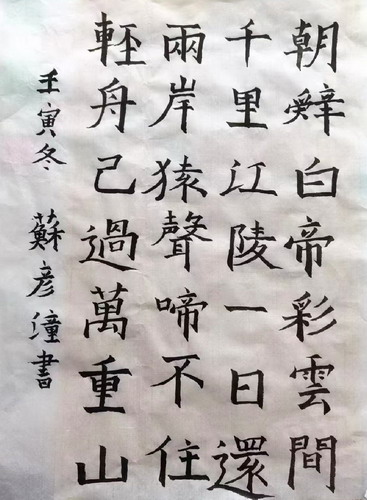 朝辤白帝彩雲間
千里江陵一日還
兩岸猿聲啼不住
輕舟己過萬重山
壬寅冬 蘇彦潼書